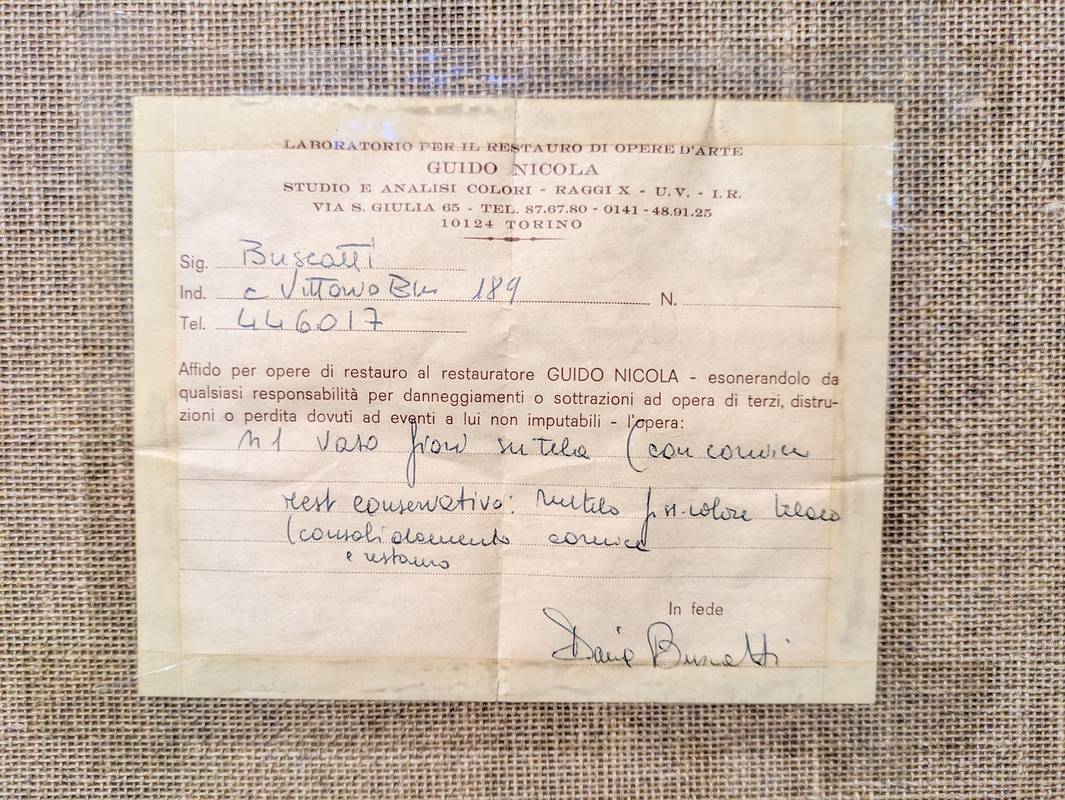 LABORATORIO PER IL RESTAURO DI OPERE D'ARTE
GUIDO NICOLA
STUDIO E ANALISI COLORI - RAGGI X - U.V. - I.R.
VIA S. GIULIA 65 - TEL. 87.67.80 - 0141 - 48.91.25
10124 TORINO
Sig. Buscatti
Ind. c Vittorio 189 N.
Tel. 446017
Affido per opere di restauro al restauratore GUIDO NICOLA - esonerandolo da
qualsiasi responsabilità per danneggiamenti o sottrazioni ad opera di terzi, distru-
zioni o perdita dovuti ad eventi a lui non imputabili - l'opera:
N 1 vaso fiori su tela (con cornice
rest conservativo: colore telaio
(consolidamento cornice
e restauro
In fede
Buscatti